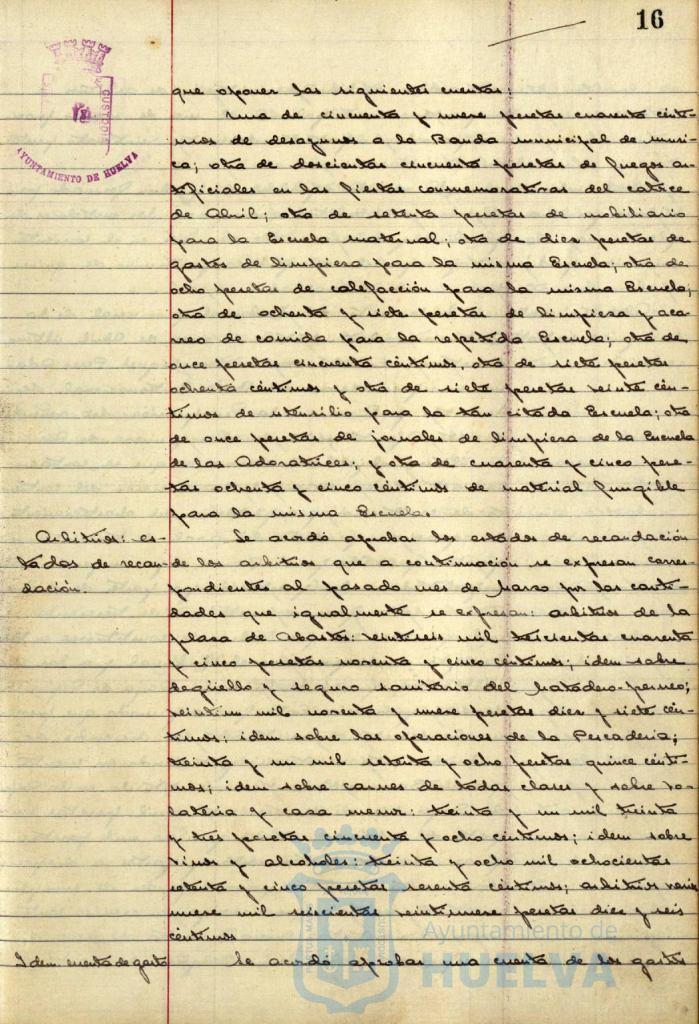 16
CUSTODIA
AYUNTAMIENTO DE HUELVA
que oponer las siguientes cuentas:
Una de cincuenta y nueve pesetas cuarenta cénti-
mos de desayunos a la Banda municipal de músi-
ca; otra de doscientas cincuenta pesetas de fuegos ar-
tificiales en las fiestas conmemorativas del catorce
de Abril; otra de setenta pesetas de mobiliario
para la Escuela maternal; otra de diez pesetas de
gastos de limpieza para la misma Escuela; otra de
ocho pesetas de calefacción para la misma Escuela;
otra de ochenta y siete pesetas de limpieza y aca-
rreo de comida para la repetida Escuela; otra de
once pesetas cincuenta céntimos, otra de siete pesetas
ochenta céntimos y otra de siete pesetas veinte cén-
timos de utensilio para la tan citada Escuela; otra
de once pesetas de jornales de limpieza de la Escuela
de las Adoratrices; y otra de cuarenta y cinco pese-
tas ochenta y cinco céntimos de material fungible
para la misma Escuela.
Arbitrios: es-
tados de recau-
dación.
Se acordó aprobar los estados de recaudación
de los arbitrios que a continuación se expresan corres-
pondientes al pasado mes de Marzo por las canti-
dades que igualmente se expresan: arbitrios de la
plaza de Abastos: veintiseis mil trescientas cuarenta
y cinco pesetas noventa y cinco céntimos; idem sobre
degüello y seguro sanitario del Matadero-porcuno;
veintiun mil noventa y nueve pesetas diez y siete cén-
timos; idem sobre las operaciones de la Pescadería;
treinta y un mil setenta y ocho pesetas quince cénti-
mos; idem sobre carnes de todas clases y sobre vo-
latería y caza menor: treinta y un mil treinta
y tres pesetas cincuenta y ocho céntimos; idem sobre
vinos y alcoholes: treinta y ocho mil ochocientas
setenta y cinco pesetas sesenta céntimos; arbitrios varios
nueve mil seiscientas veintinueve pesetas diez y seis
céntimos
Idem. cuenta de gasto
Se acordó aprobar una cuenta de los gastos
Ayuntamiento de
HUELVA